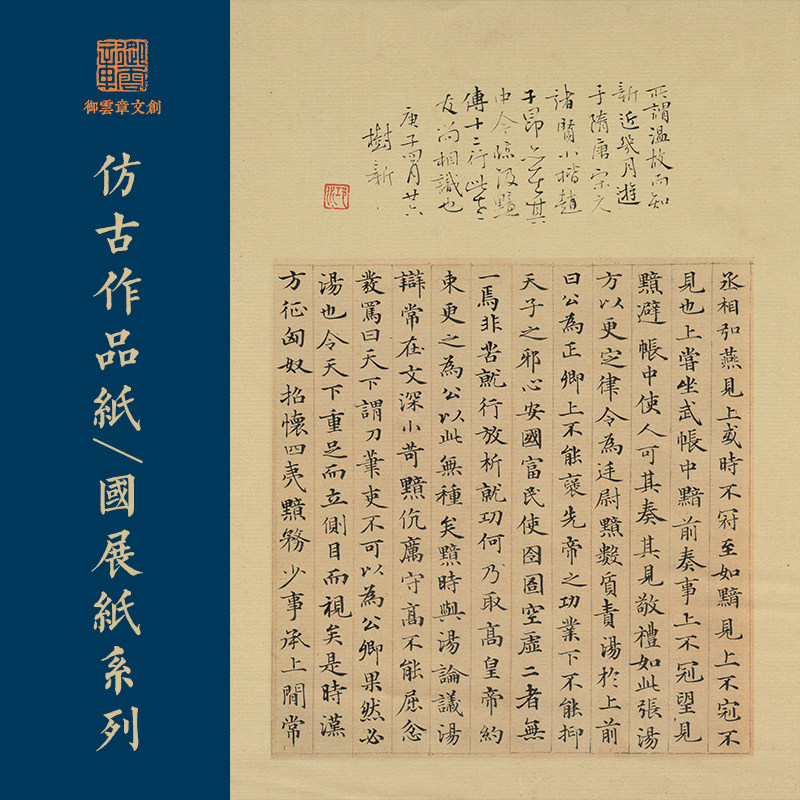 御雲章文創
仿古作品紙/國展紙系列
所謂溫故而知
新近幾月遊
于隋唐宋元
諸賢小楷趙
子昂
中令臨汲黯
傳十二行此

友尚相識也
庚子四月廿六
樹新
丞相弘燕見上或時不冠至如黯見上不冠不
見也上嘗坐武帳中黯前奏事上不冠望見
黯避帳中使人可其奏其見敬禮如此張湯
方以更定律令為廷尉黯數質責湯於上前
曰公為正卿上不能褒先帝之功業下不能抑
天子之邪心安國富民使囹圄空虛二者無
一焉非苦就行放析就功何乃取高皇帝約
束更之為公以此無種矣黯時與湯論議湯
辯常在文深小苛黯伉厲守高不能屈忿
發罵曰天下謂刀筆吏不可以為公卿果然必
湯也令天下重足而立側目而視矣是時漢
方征匈奴招懷四夷黯務少事承上閒常